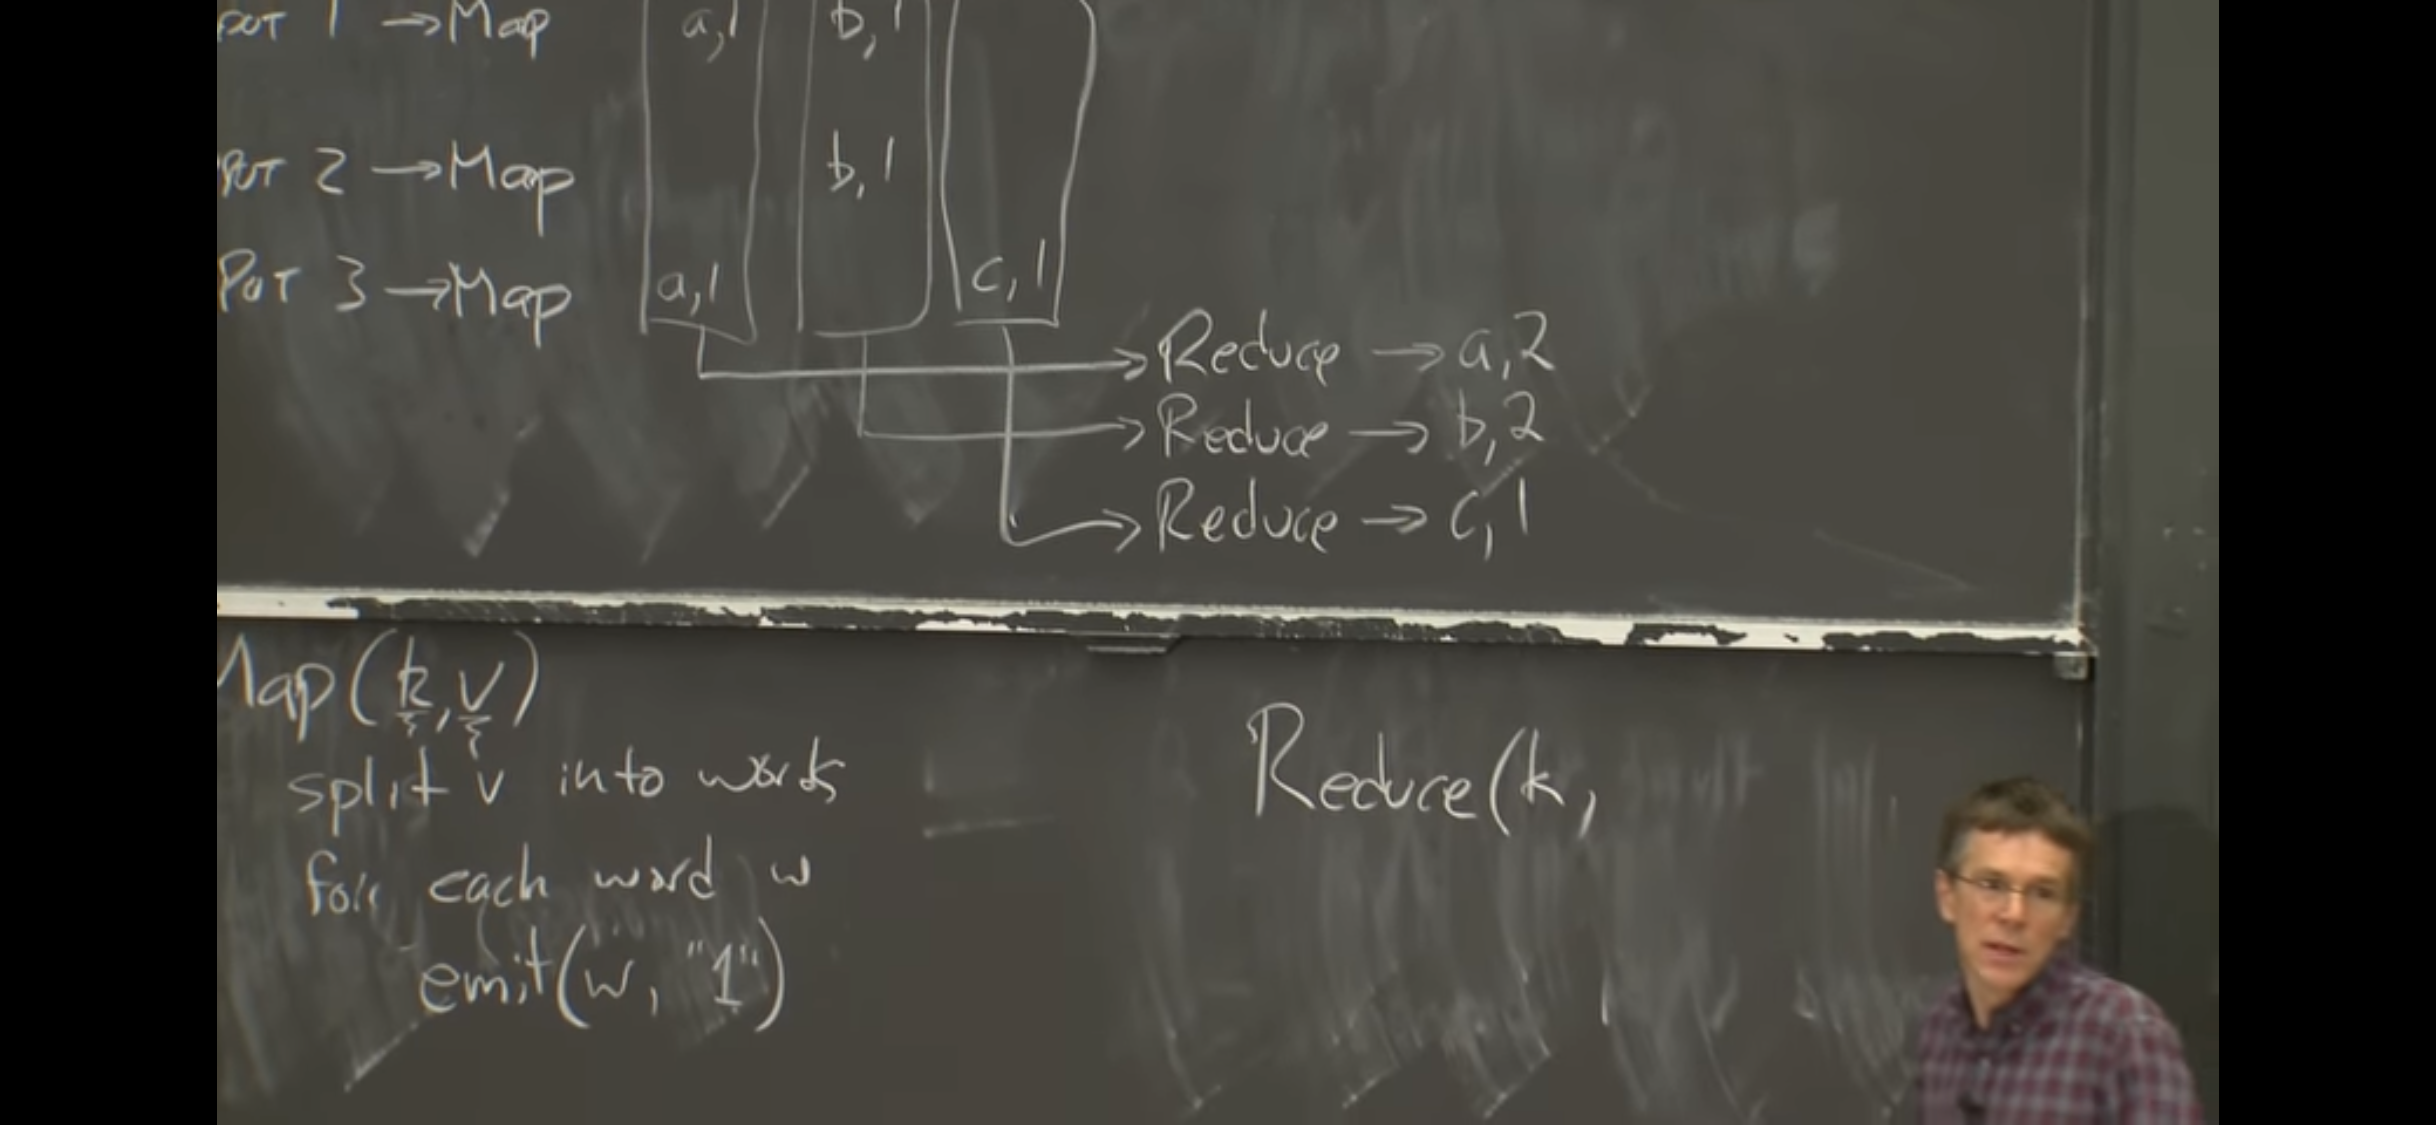 PUT 1 → Map a,1 b,1
PUT 2 → Map b,1
PUT 3 → Map a,1 c,1
Reduce → a,2
Reduce → b,2
Reduce → c,1
Map(k,v)
split v into words
for each word w
emit(w, "1")
Reduce(k,